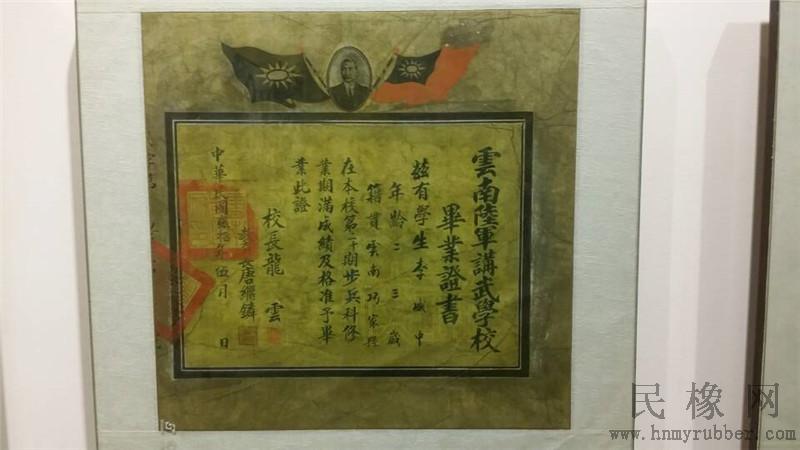 雲南陸軍講武學校
畢業證書
茲有學生李斌中
年齡二三歲
籍貫雲南巧家縣
在本校第二十期步兵科修
業期滿成績及格准予畢
業此證
校長龍雲
唐繼鏻
中華民國
伍月 日
民橡网
www.hnmyrubber.com